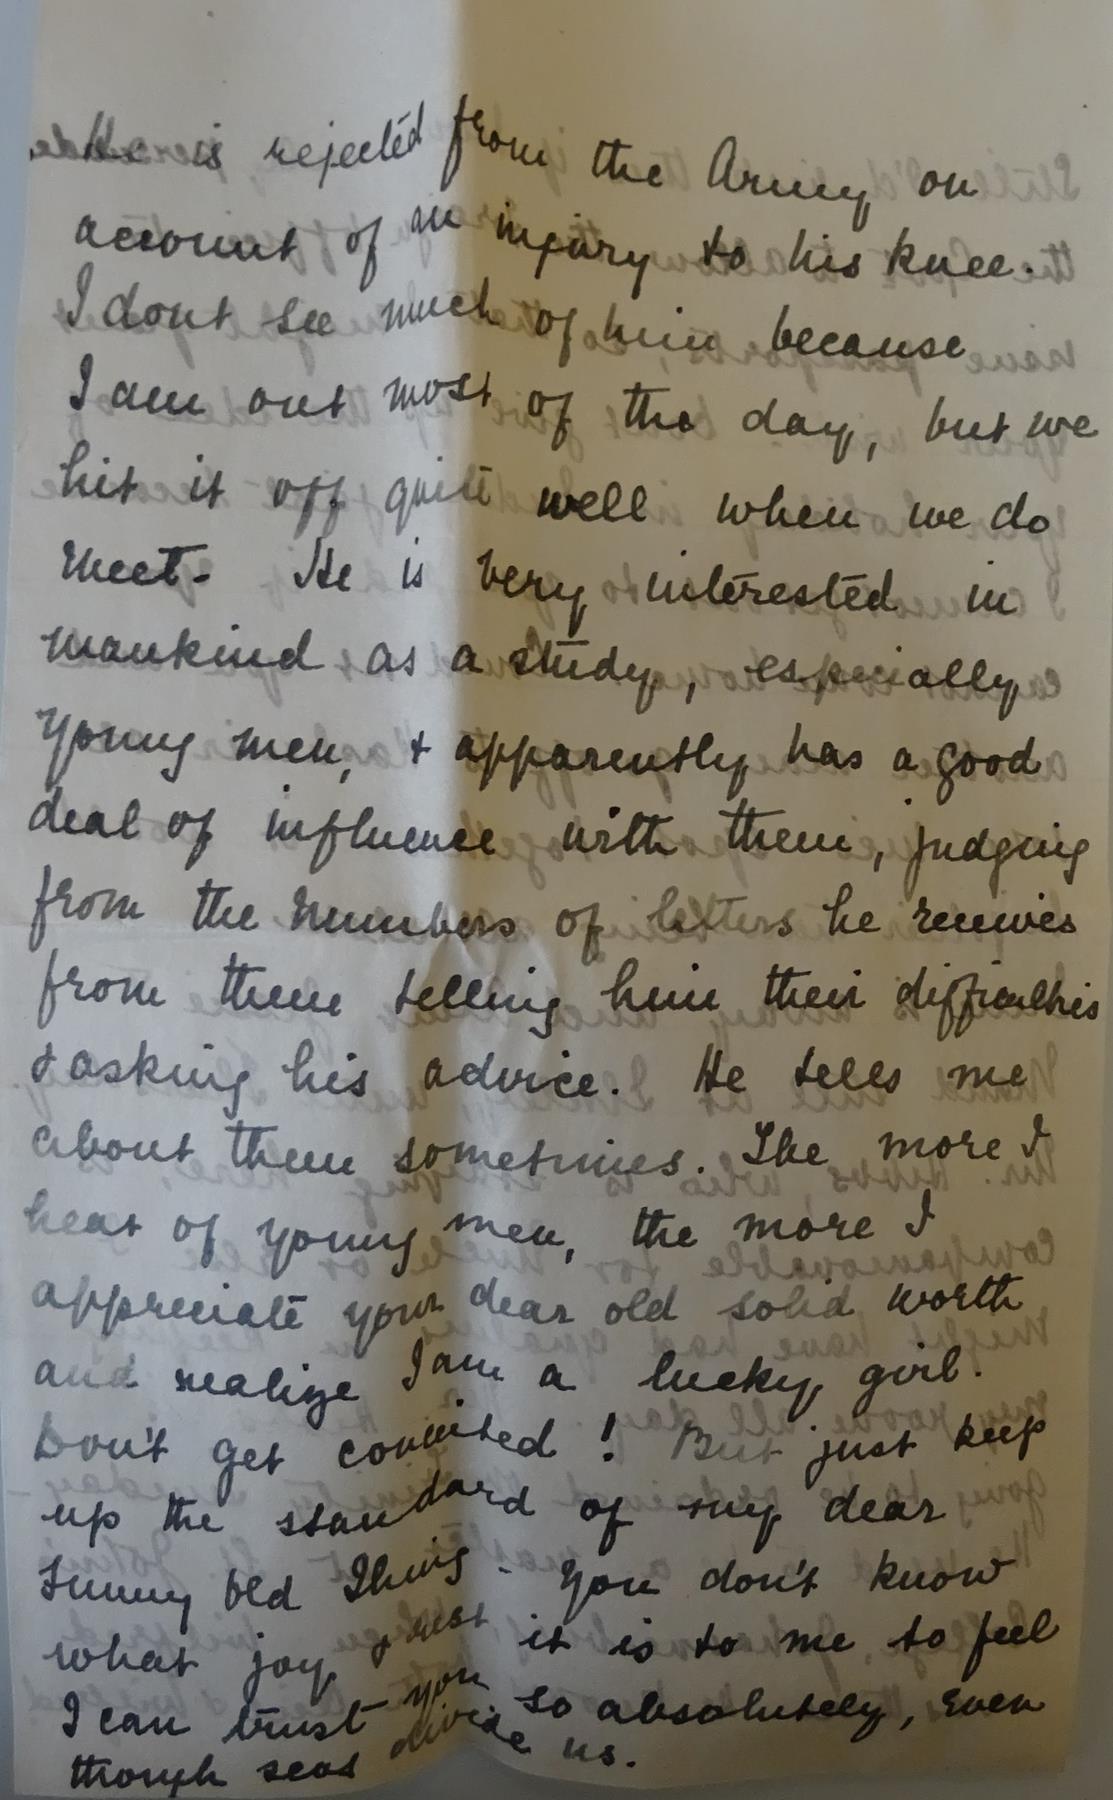 He is rejected from the Army on
account of an injury to his knee.
I dont see much of him because
I am out most of the day, but we
hit it off quite well when we do
meet. He is very interested in
mankind as a study, especially
young men, & apparently has a good
deal of influence with them, judging
from the numbers of letters he receives
from them telling him their difficulties
& asking his advice. He tells me
about them sometimes. The more I
hear of young men, the more I
appreciate your dear old solid worth
and realize I am a lucky girl.
Don't get conceited! But just keep
up the standard of my dear
Funny Old Thing. You don't know
what joy & rest it is to me to feel
I can trust you so absolutely, even
though seas divide us.